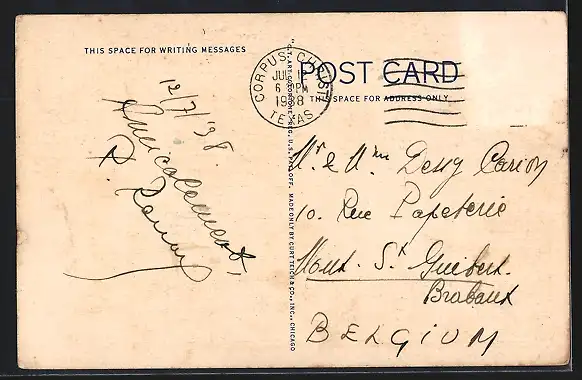 THIS SPACE FOR WRITING MESSAGES
12/7/38.
Amicalement,
"C.T. ART-COLORTONE" REG. U.S. PAT. OFF. MADE ONLY BY CURT TEICH & CO., INC., CHICAGO
CORPUS CHRISTI
JUL
6 PM
1938
TEXAS
POST CARD
THIS SPACE FOR ADDRESS ONLY
Mr & Mme Carion
10. Rue Papeterie
Mont. St Guibert.
Brabant
BELGIUM